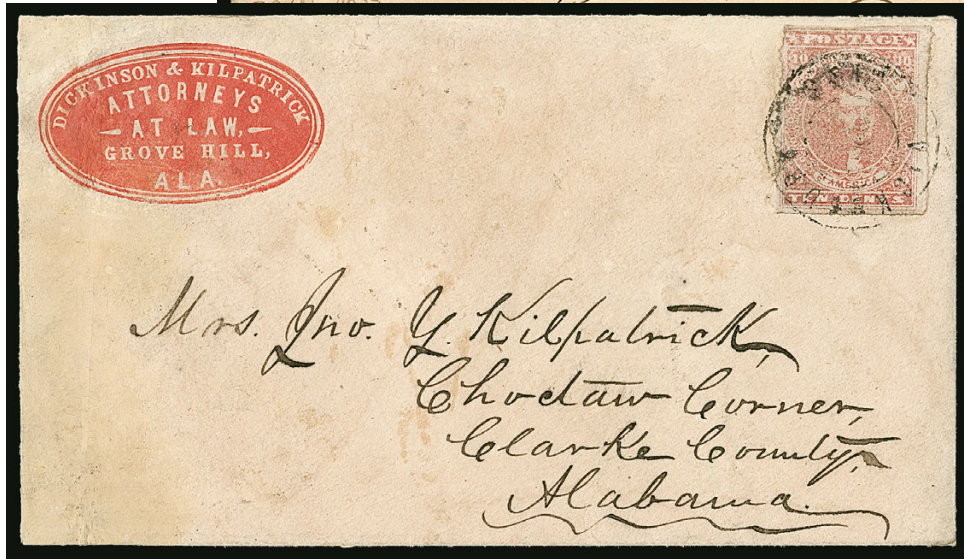 DICKINSON & KILPATRICK
ATTORNEYS
AT LAW,
GROVE HILL,
ALA.
POSTAGE
10 10
OF AMERICA
TEN CENTS
Mrs. Jno. Y. Kilpatrick,
Choctaw Corner,
Clarke County,
Alabama.